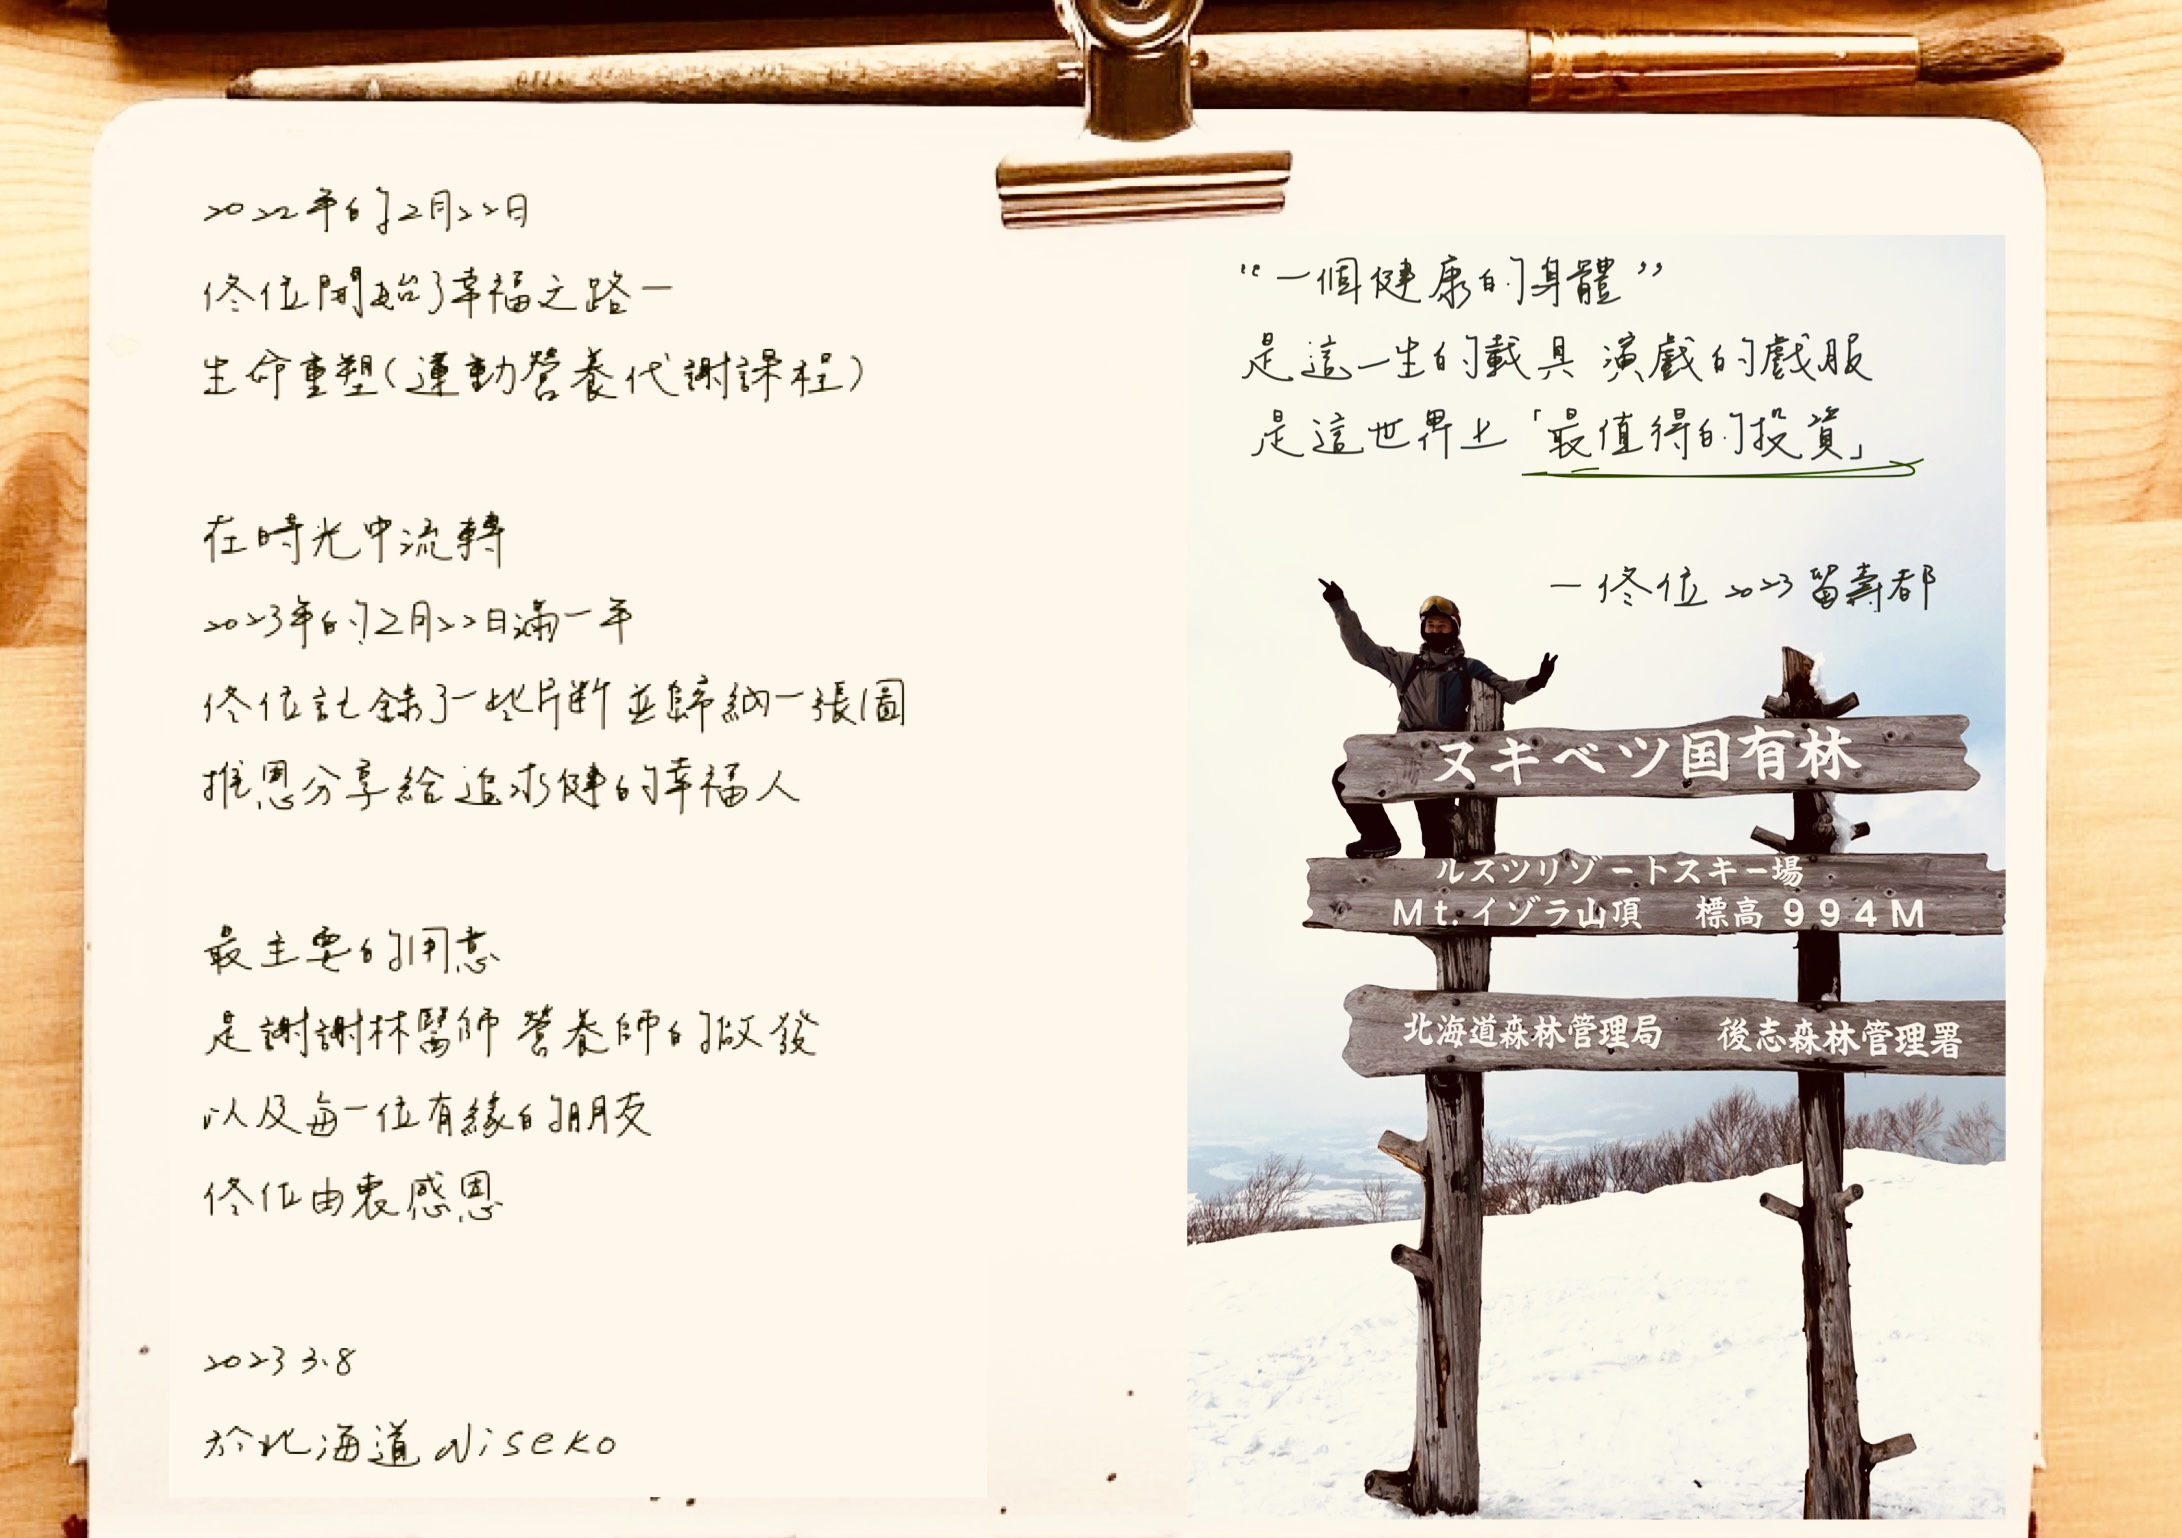 2022年的2月22日
佟位開始了幸福之路一
生命重塑(運動營養代謝課程)
在時光中流轉
2023年的2月22日滿一年
佟位記錄了一些片断並歸納一張圖
推恩分享給追求健的幸福人
最主要的用意
是謝謝林醫師 營養師的啟發
以及每一位有緣的朋友
佟位由衷感恩
2023 3.8
於北海道 Niseko
“一個健康的身體”
是這一生的載具 演戲的戲服
是這世界上「最值得的投資」
一佟位 2023 留壽都
ヌキベツ国有林
ルスツリゾートスキー場
Mt.イゾラ山頂 標高994M
北海道森林管理局 後志森林管理署